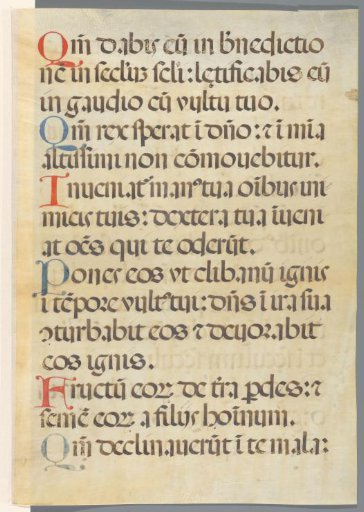 Qm̄ dabis eū in b̄nedictio
nē in sec̄lm̄ sc̄li: lętificabis eū
in gaudio cū vultu tuo.
Qm̄ rex sperat ī dn̄o: ⁊ ī mīa
altissimi non cōmovebitur.
Inveniat᷑ man᷒ tua oīb᷒ ini
micis tuis: dextera tua īveni
at oēs qui te oderūt.
Pones eos vt clibanū ignis
ī tēpore vult᷒ tui: dn̄s ī ira sua
ꝯturbabit eos ⁊ devorabit
eos ignis.
Fructū eoꝝ de t̄ra ꝑdes: ⁊
semē eoꝝ a filijs hoīnum.
Qm̄ declinaverūt ī te mala: